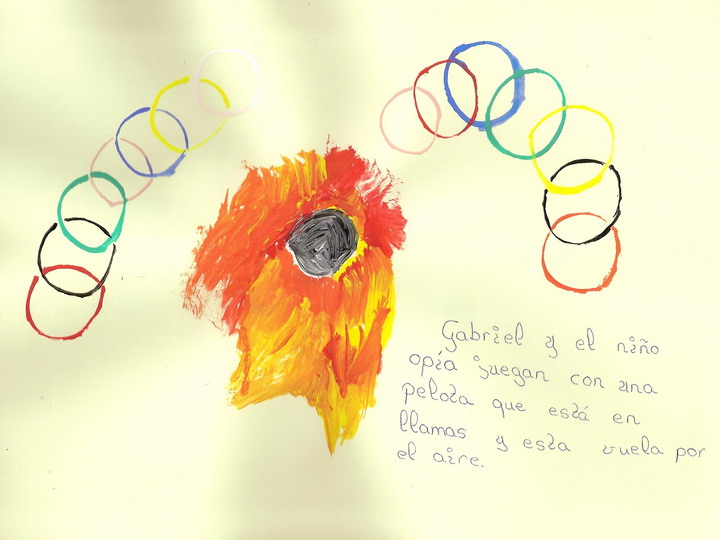 Gabriel y el niño
opía juegan con una
pelota que está en
llamas y esta vuela por
el aire.